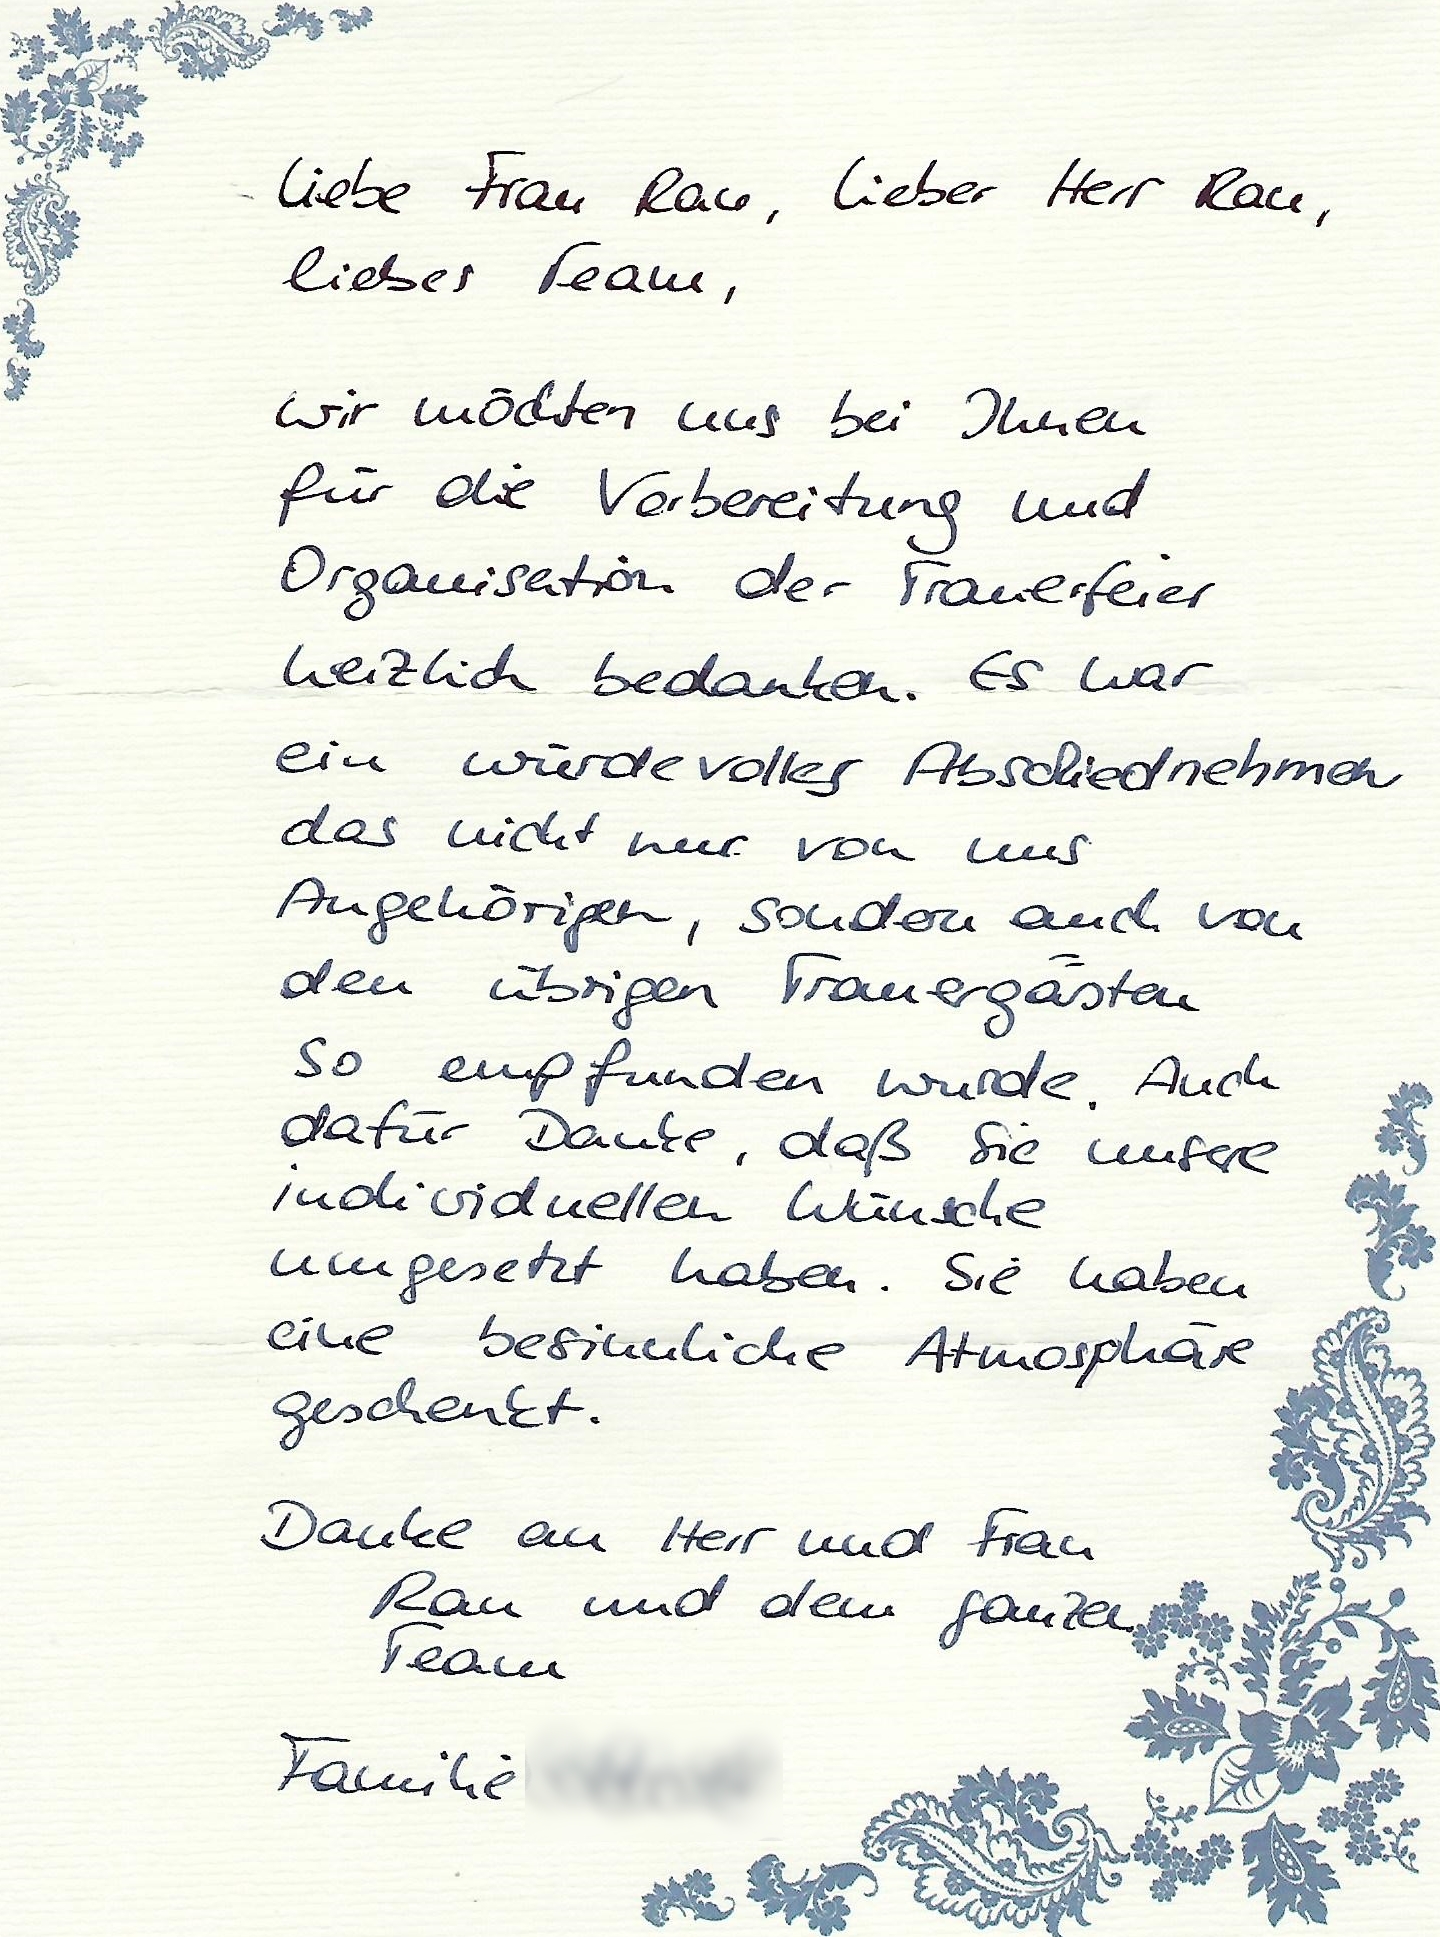 Liebe Frau Rau, lieber Herr Rau,
liebes Team,
wir möchten uns bei Ihnen
für die Vorbereitung und
Organisation der Trauerfeier
herzlich bedanken. Es war
ein würdevolles Abschiednehmen
das nicht nur von uns
Angehörigen, sondern auch von
den übrigen Trauergästen
so empfunden wurde. Auch
dafür Danke, daß Sie unsere
individuellen Wünsche
umgesetzt haben. Sie haben
eine besinnliche Atmosphäre
geschenkt.
Danke an Herr und Frau
Rau und dem ganzen
Team
Familie